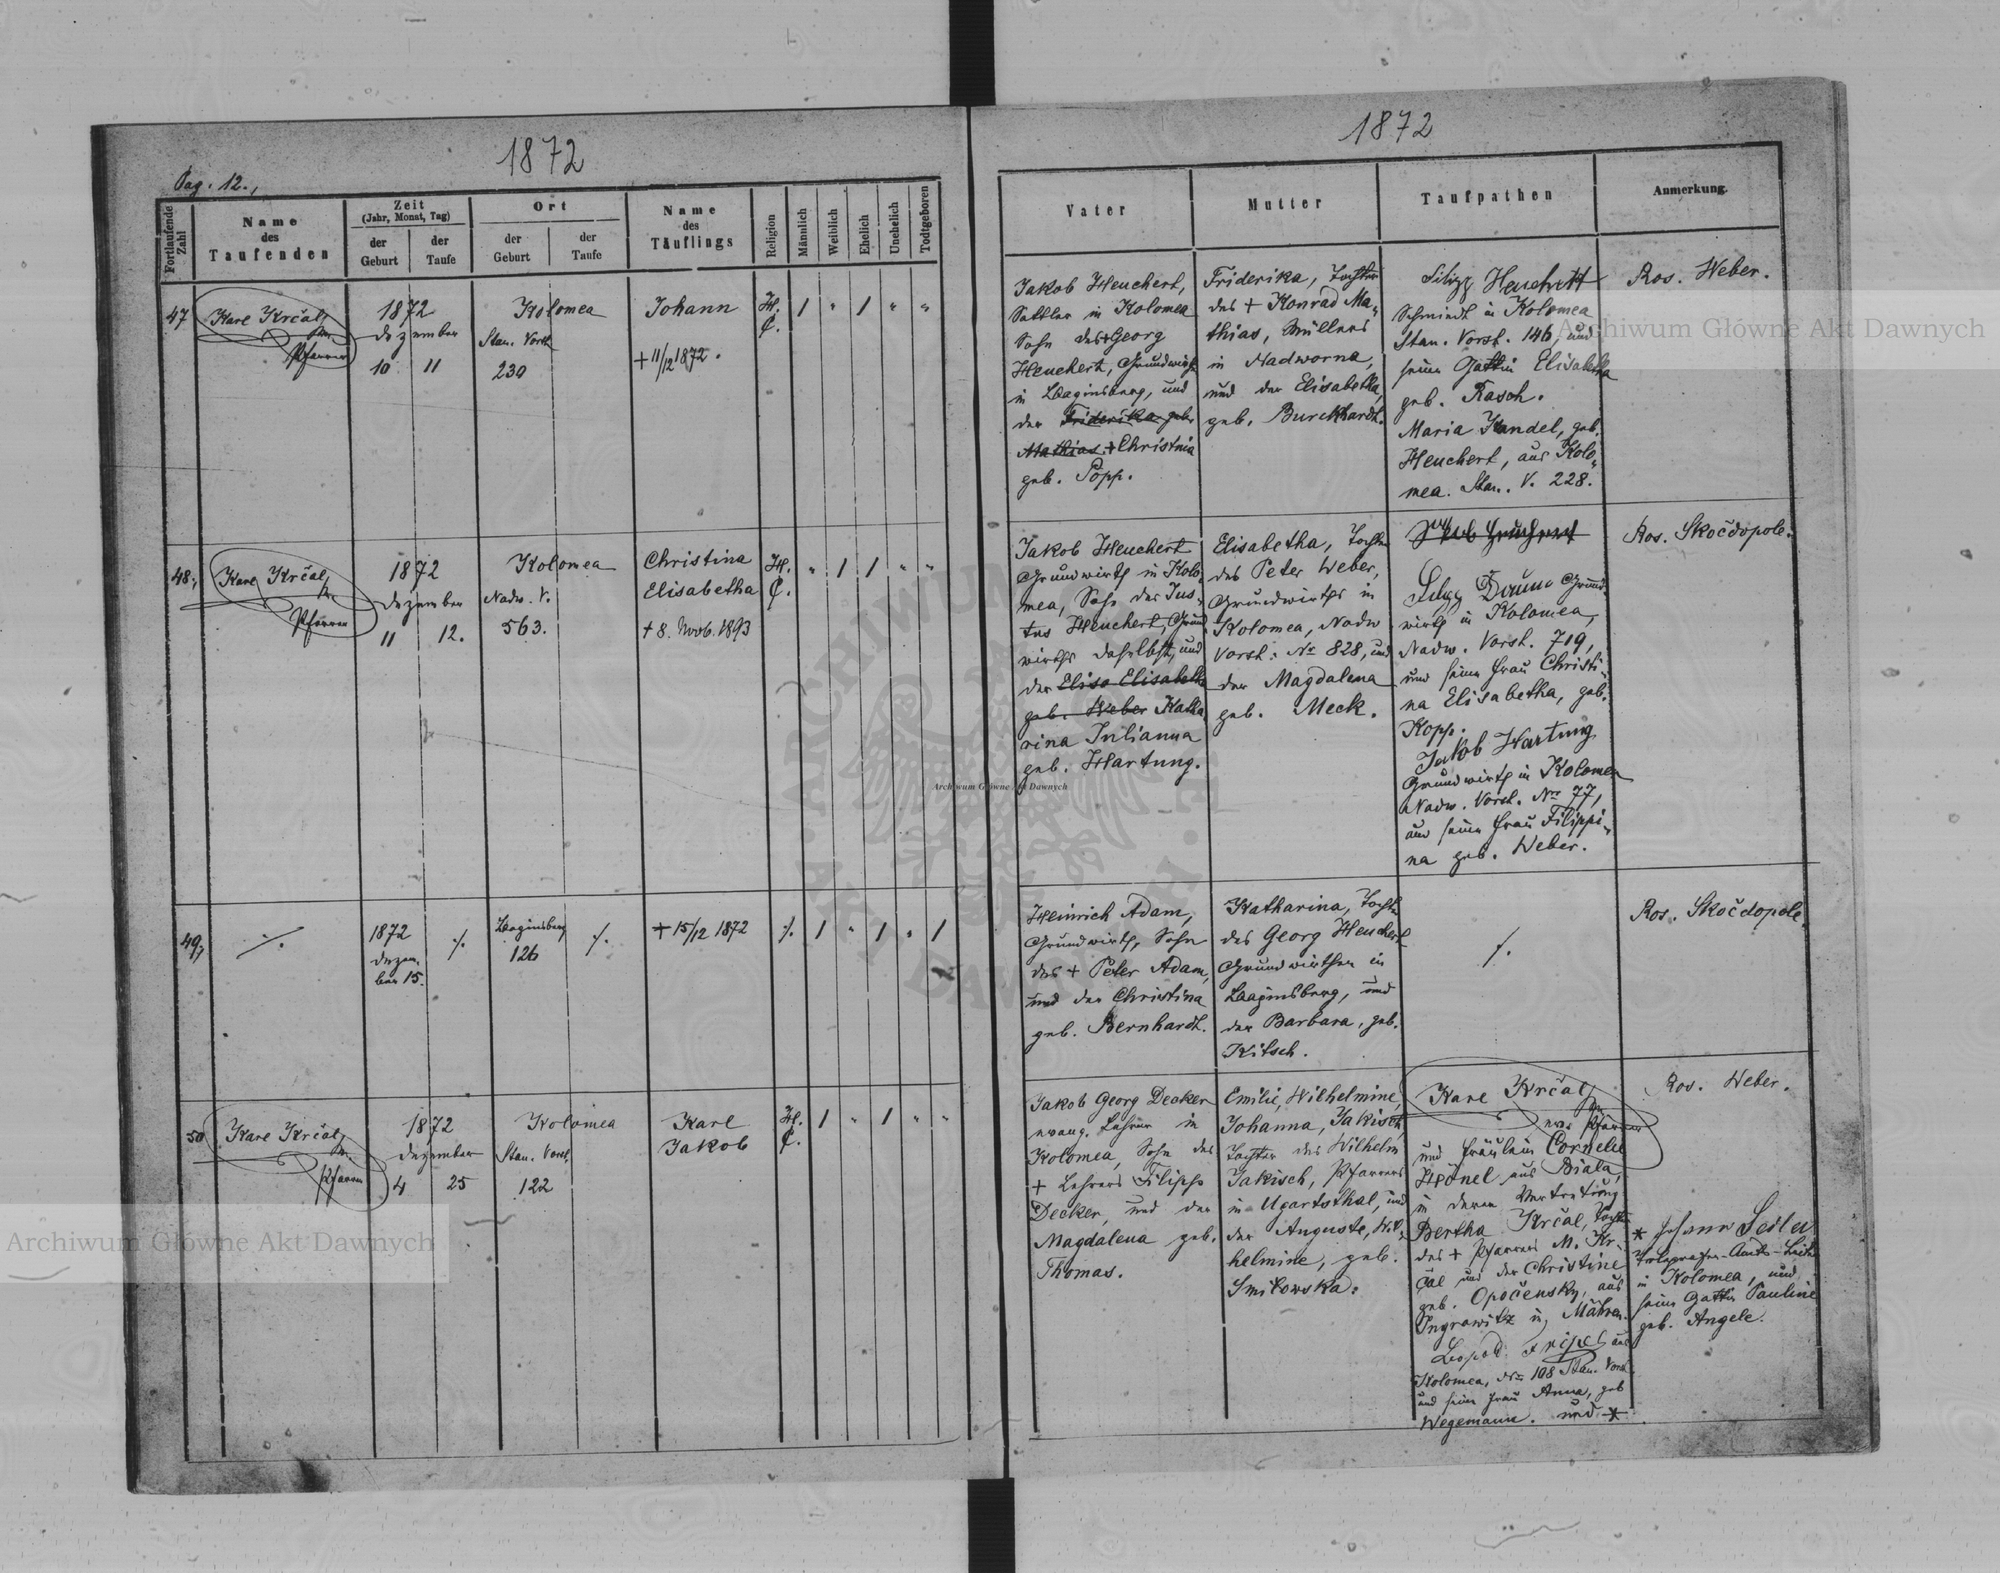 1872
Pag. 12.,
Fortlaufende Zahl
Name des Taufenden
Zeit
(Jahr, Monat, Tag)
der Geburt
der Taufe
Ort
der Geburt
der Taufe
Name des Täuflings
Religion
Männlich
Weiblich
Ehelich
Unehelich
Todtgeboren
47
Karl Krčal,
Pfarrer
1872
Dezember
10 11
Kolomea
Stan. Vorst.
230
Johann
+ 11/12 1872.
H. C.
1 " 1 " "
48,
Karl Krčal,
Pfarrer
1872
Dezember
11 12.
Kolomea
Nadw. V.
563.
Christina
Elisabetha
+ 8. Novb. 1893
H. C.
" 1 1 " "
49,
./.
1872
Dezem-
ber 15.
./.
Baginsberg
126
./.
+ 15/12 1872
./. 1 " 1 " 1
50
Karl Krčal,
Pfarrer
1872
Dezember
4 25
Kolomea
Stan. Vorst.
122
Karl
Jakob
H. C.
1 " 1 " "
1872
Vater
Mutter
Taufpathen
Anmerkung.
Jakob Heuchert,
Sattler in Kolomea
Sohn des + Georg
Heuchert, Grundwirth
in Baginsberg, und
der Friderika geb.
Mathias. + Christina
geb. Popp.
Friderika, Tochter
des + Konrad Ma-
thias, Müllers
in Nadworna,
und der Elisabetha,
geb. Burckhardt.
Filipp Heuchert
Schmiedt in Kolomea
Stan. Vorst. 146, und
seine Gattin Elisabetha
geb. Rasch.
Maria Kandel, geb.
Heuchert, aus Kolo-
mea. Stan. V. 228.
Ros. Weber.
Jakob Heuchert
Grundwirth in Kolo-
mea, Sohn des Jus-
tus Heuchert, Grund-
wirths daselbst, und
der Elisa Elisabetha
geb. Weber Katha-
rina Julianna
geb. Hartung.
Elisabetha, Tochter
des Peter Weber,
Grundwirths in
Kolomea, Nadw
Vorst: Nr 828, und
der Magdalena
geb. Meck.
Filipp Daum Grund-
wirth in Kolomea,
Nadw. Vorst. 719,
und seine Frau Christi-
na Elisabetha, geb.
Kopp.
Jakob Hartung
Grundwirth in Kolomea
Nadw. Vorst. Nro 77,
und seine Frau Filippi-
na geb. Weber.
Ros. Skočdopole.
Heinrich Adam,
Grundwirth, Sohn
des + Peter Adam,
und der Christina
geb. Bernhardt.
Katharina, Tochter
des Georg Heuchert
Grundwirthen in
Baginsberg, und
der Barbara, geb.
Kitsch.
./.
Ros. Skočdopole.
Jakob Georg Decker
evang. Lehrer in
Kolomea, Sohn des
+ Lehrers Filipp
Decker, und der
Magdalena geb.
Thomas.
Emilie, Wilhelmine,
Johanna, Jakisch,
Tochter des Wilhelm
Jakisch, Pfarrers
in Ugartsthal, und
der Auguste, Wil-
helmine, geb.
Smikowska.
Karl Krčal,
ev. Pfarrer
und Fräulein Cornelie
Hönel aus Biala,
in deren Vertretung
Bertha Krčal, Tochter
des + Pfarrers M. Kr-
čal und der Christine
geb. Opočensky, aus
Ingrowitz in Mähren.
Leopold aus
Kolomea, Nro 108 Stan. Vorst.
und seine Frau Anna, geb
Wegemann. und *
Ros. Weber.
* Johann Seiler
Telegrafen-Amts-Leiter
in Kolomea, und
seine Gattin Pauline
geb. Angele.
Archiwum Główne Akt Dawnych
Archiwum Główne Akt Dawnych
Archiwum Główne Akt Dawnych